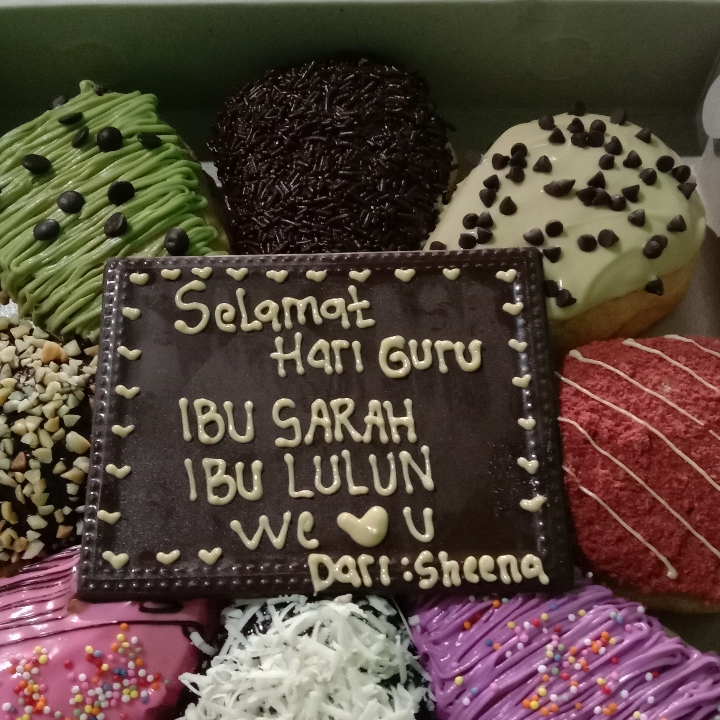 Selamat
Hari Guru
IBU SARAH
IBU LULUN
We ❤ U
Dari : Sheena